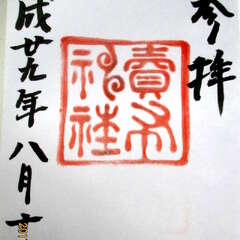 参拝
賣布
神社
成廿九年八月十